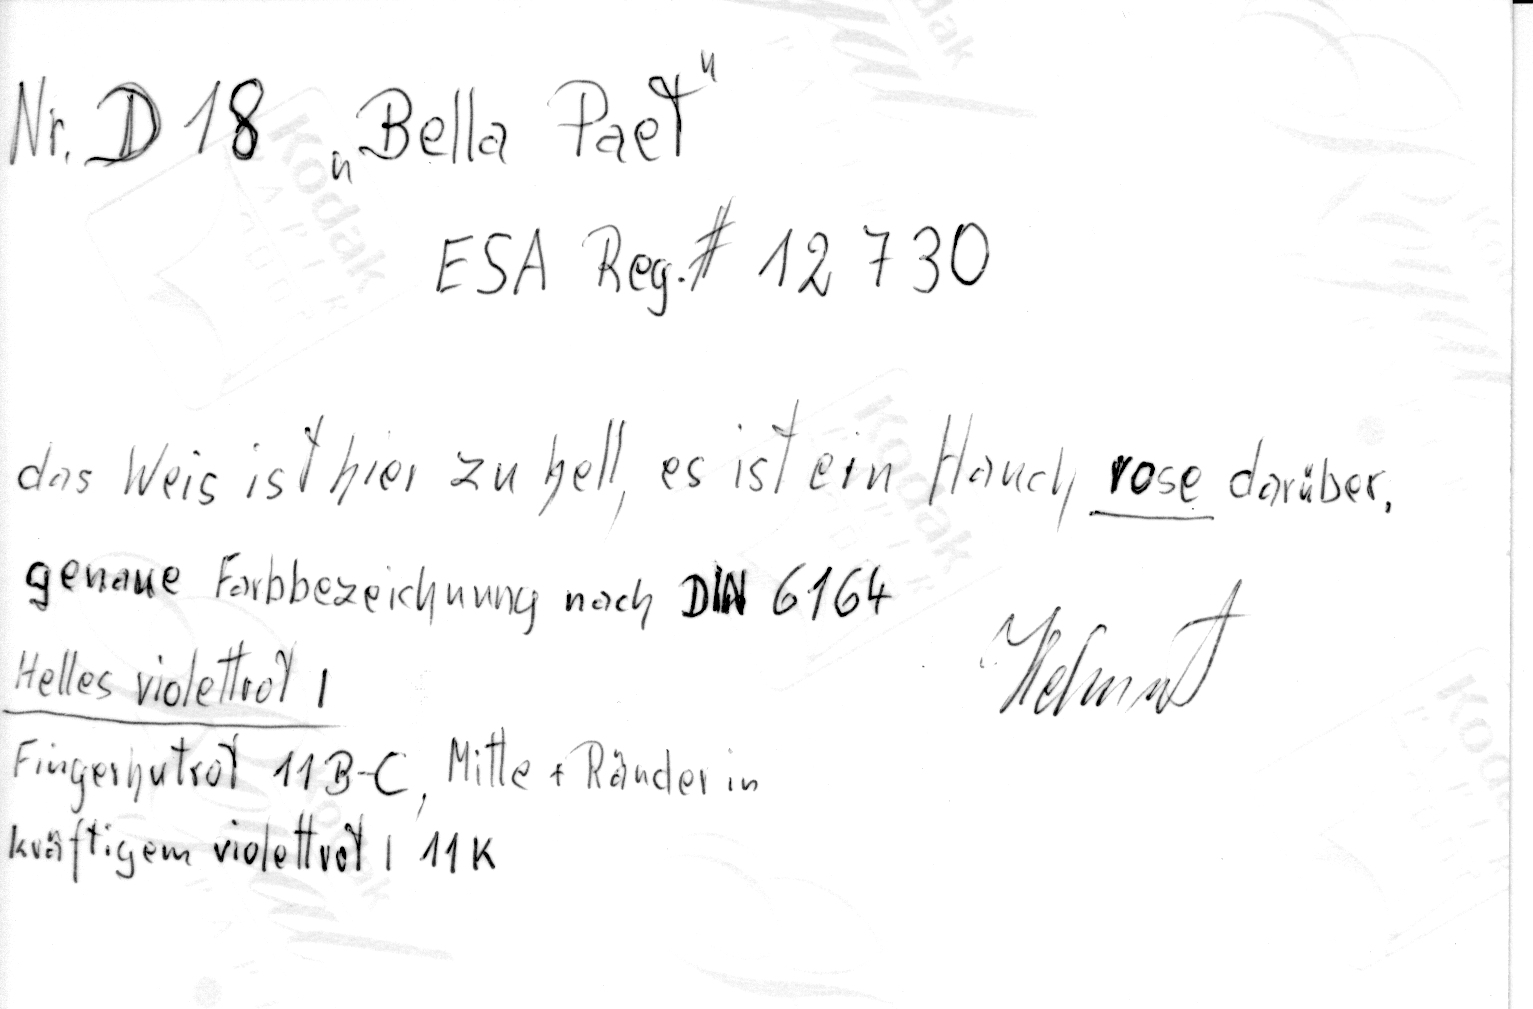 Nr. D 18 „Bella Pact"
ESA Reg.# 12 730
das Weis ist hier zu hell, es ist ein Hauch rose darüber,
genaue Farbbezeichnung nach DIN 6164
Helmut
Helles violettrot 1
Fingerhutrot 11 B-C, Mitte + Ränder in
kräftigem violettrot 1 11 K
Kodak
Kodak
Kodak